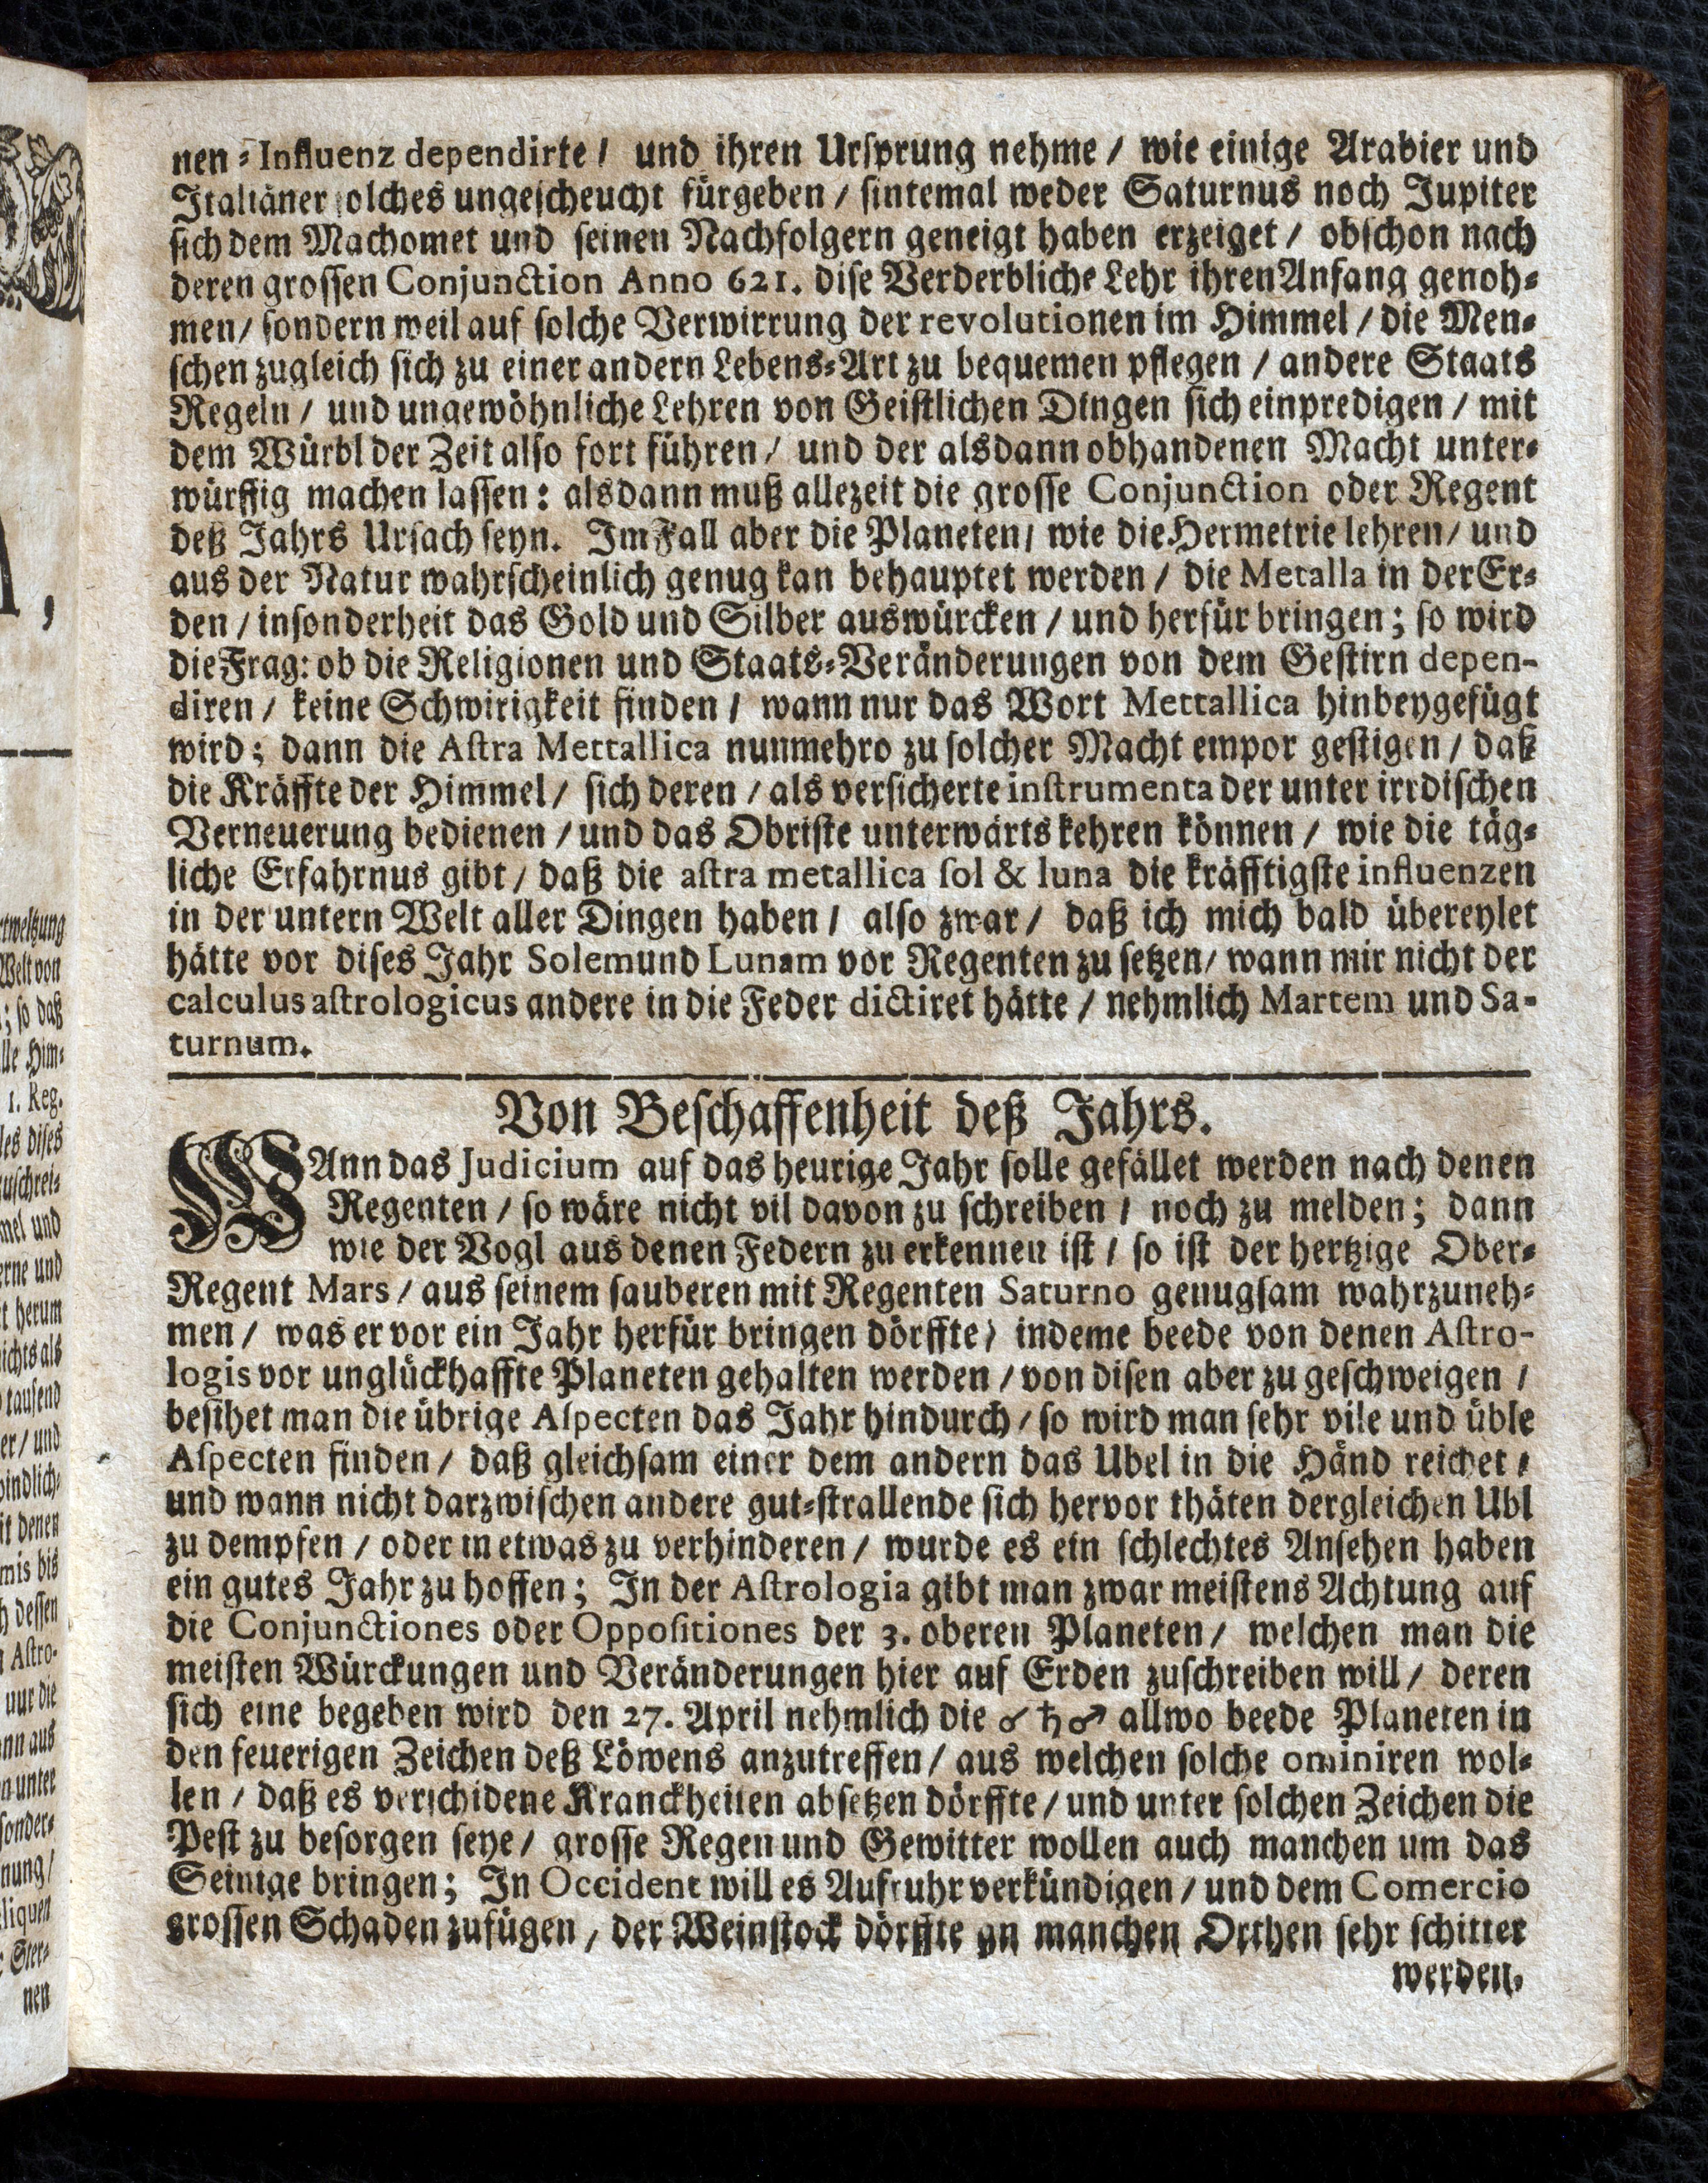 nen-Influenz dependirte / und ihren Ursprung nehme / wie einige Arabier und
Italiäner solches ungescheucht fürgeben / sintemal weder Saturnus noch Jupiter
sich dem Machomet und seinen Nachfolgern geneigt haben erzeiget / obschon nach
deren grossen Conjunction Anno 621. dise Verderbliche Lehr ihren Anfang genoh-
men / sondern weil auf solche Verwirrung der revolutionen im Himmel / die Men-
schen zugleich sich zu einer andern Lebens-Art zu bequemen pflegen / andere Staats
Regeln / und ungewöhnliche Lehren von Geistlichen Dingen sich einpredigen / mit
dem Würbl der Zeit also fort führen / und der alsdann obhandenen Macht unter-
würffig machen lassen: alsdann muß allezeit die grosse Conjunction oder Regent
deß Jahrs Ursach seyn. Im Fall aber die Planeten / wie die Hermetrie lehren / und
aus der Natur wahrscheinlich genug kan behauptet werden / die Metalla in der Er-
den / insonderheit das Gold und Silber auswürcken / und herfür bringen; so wird
die Frag: ob die Religionen und Staats-Veränderungen von dem Gestirn depen-
diren / keine Schwirigkeit finden / wann nur das Wort Mettallica hinbeygefügt
wird; dann die Astra Mettallica nunmehro zu solcher Macht empor gestigen / daß
die Kräffte der Himmel / sich deren / als versicherte instrumenta der unter irrdischen
Verneuerung bedienen / und das Obriste unterwärts kehren können / wie die täg-
liche Erfahrnus gibt / daß die astra metallica sol & luna die kräfftigste influenzen
in der untern Welt aller Dingen haben / also zwar / daß ich mich bald übereylet
hätte vor dises Jahr Solem und Lunam vor Regenten zu setzen / wann mir nicht der
calculus astrologicus andere in die Feder dictiret hätte / nehmlich Martem und Sa-
turnum.
Von Beschaffenheit deß Jahrs.
WAnn das Judicium auf das heurige Jahr solle gefället werden nach denen
Regenten / so wäre nicht vil davon zu schreiben / noch zu melden; dann
wie der Vogl aus denen Federn zu erkennen ist / so ist der hertzige Ober-
Regent Mars / aus seinem sauberen mit Regenten Saturno genugsam wahrzuneh-
men / was er vor ein Jahr herfür bringen dörffte / indeme beede von denen Astro-
logis vor unglückhaffte Planeten gehalten werden / von disen aber zu geschweigen /
besihet man die übrige Aspecten das Jahr hindurch / so wird man sehr vile und üble
Aspecten finden / daß gleichsam einer dem andern das Ubel in die Händ reichet /
und wann nicht darzwischen andere gut-strallende sich hervor thäten dergleichen Ubl
zu dempfen / oder in etwas zu verhinderen / wurde es ein schlechtes Ansehen haben
ein gutes Jahr zu hoffen; In der Astrologia gibt man zwar meistens Achtung auf
die Conjunctiones oder Oppositiones der 3. oberen Planeten / welchen man die
meisten Würckungen und Veränderungen hier auf Erden zuschreiben will / deren
sich eine begeben wird den 27. April nehmlich die ☌ ♄ ♂ allwo beede Planeten in
den feuerigen Zeichen deß Löwens anzutreffen / aus welchen solche ominiren wol-
len / daß es verschidene Kranckheiten absetzen dörffte / und unter solchen Zeichen die
Pest zu besorgen seye / grosse Regen und Gewitter wollen auch manchen um das
Seinige bringen; In Occident will es Aufruhr verkündigen / und dem Comercio
grossen Schaden zufügen / der Weinstock dörffte an manchen Orthen sehr schitter
werden.